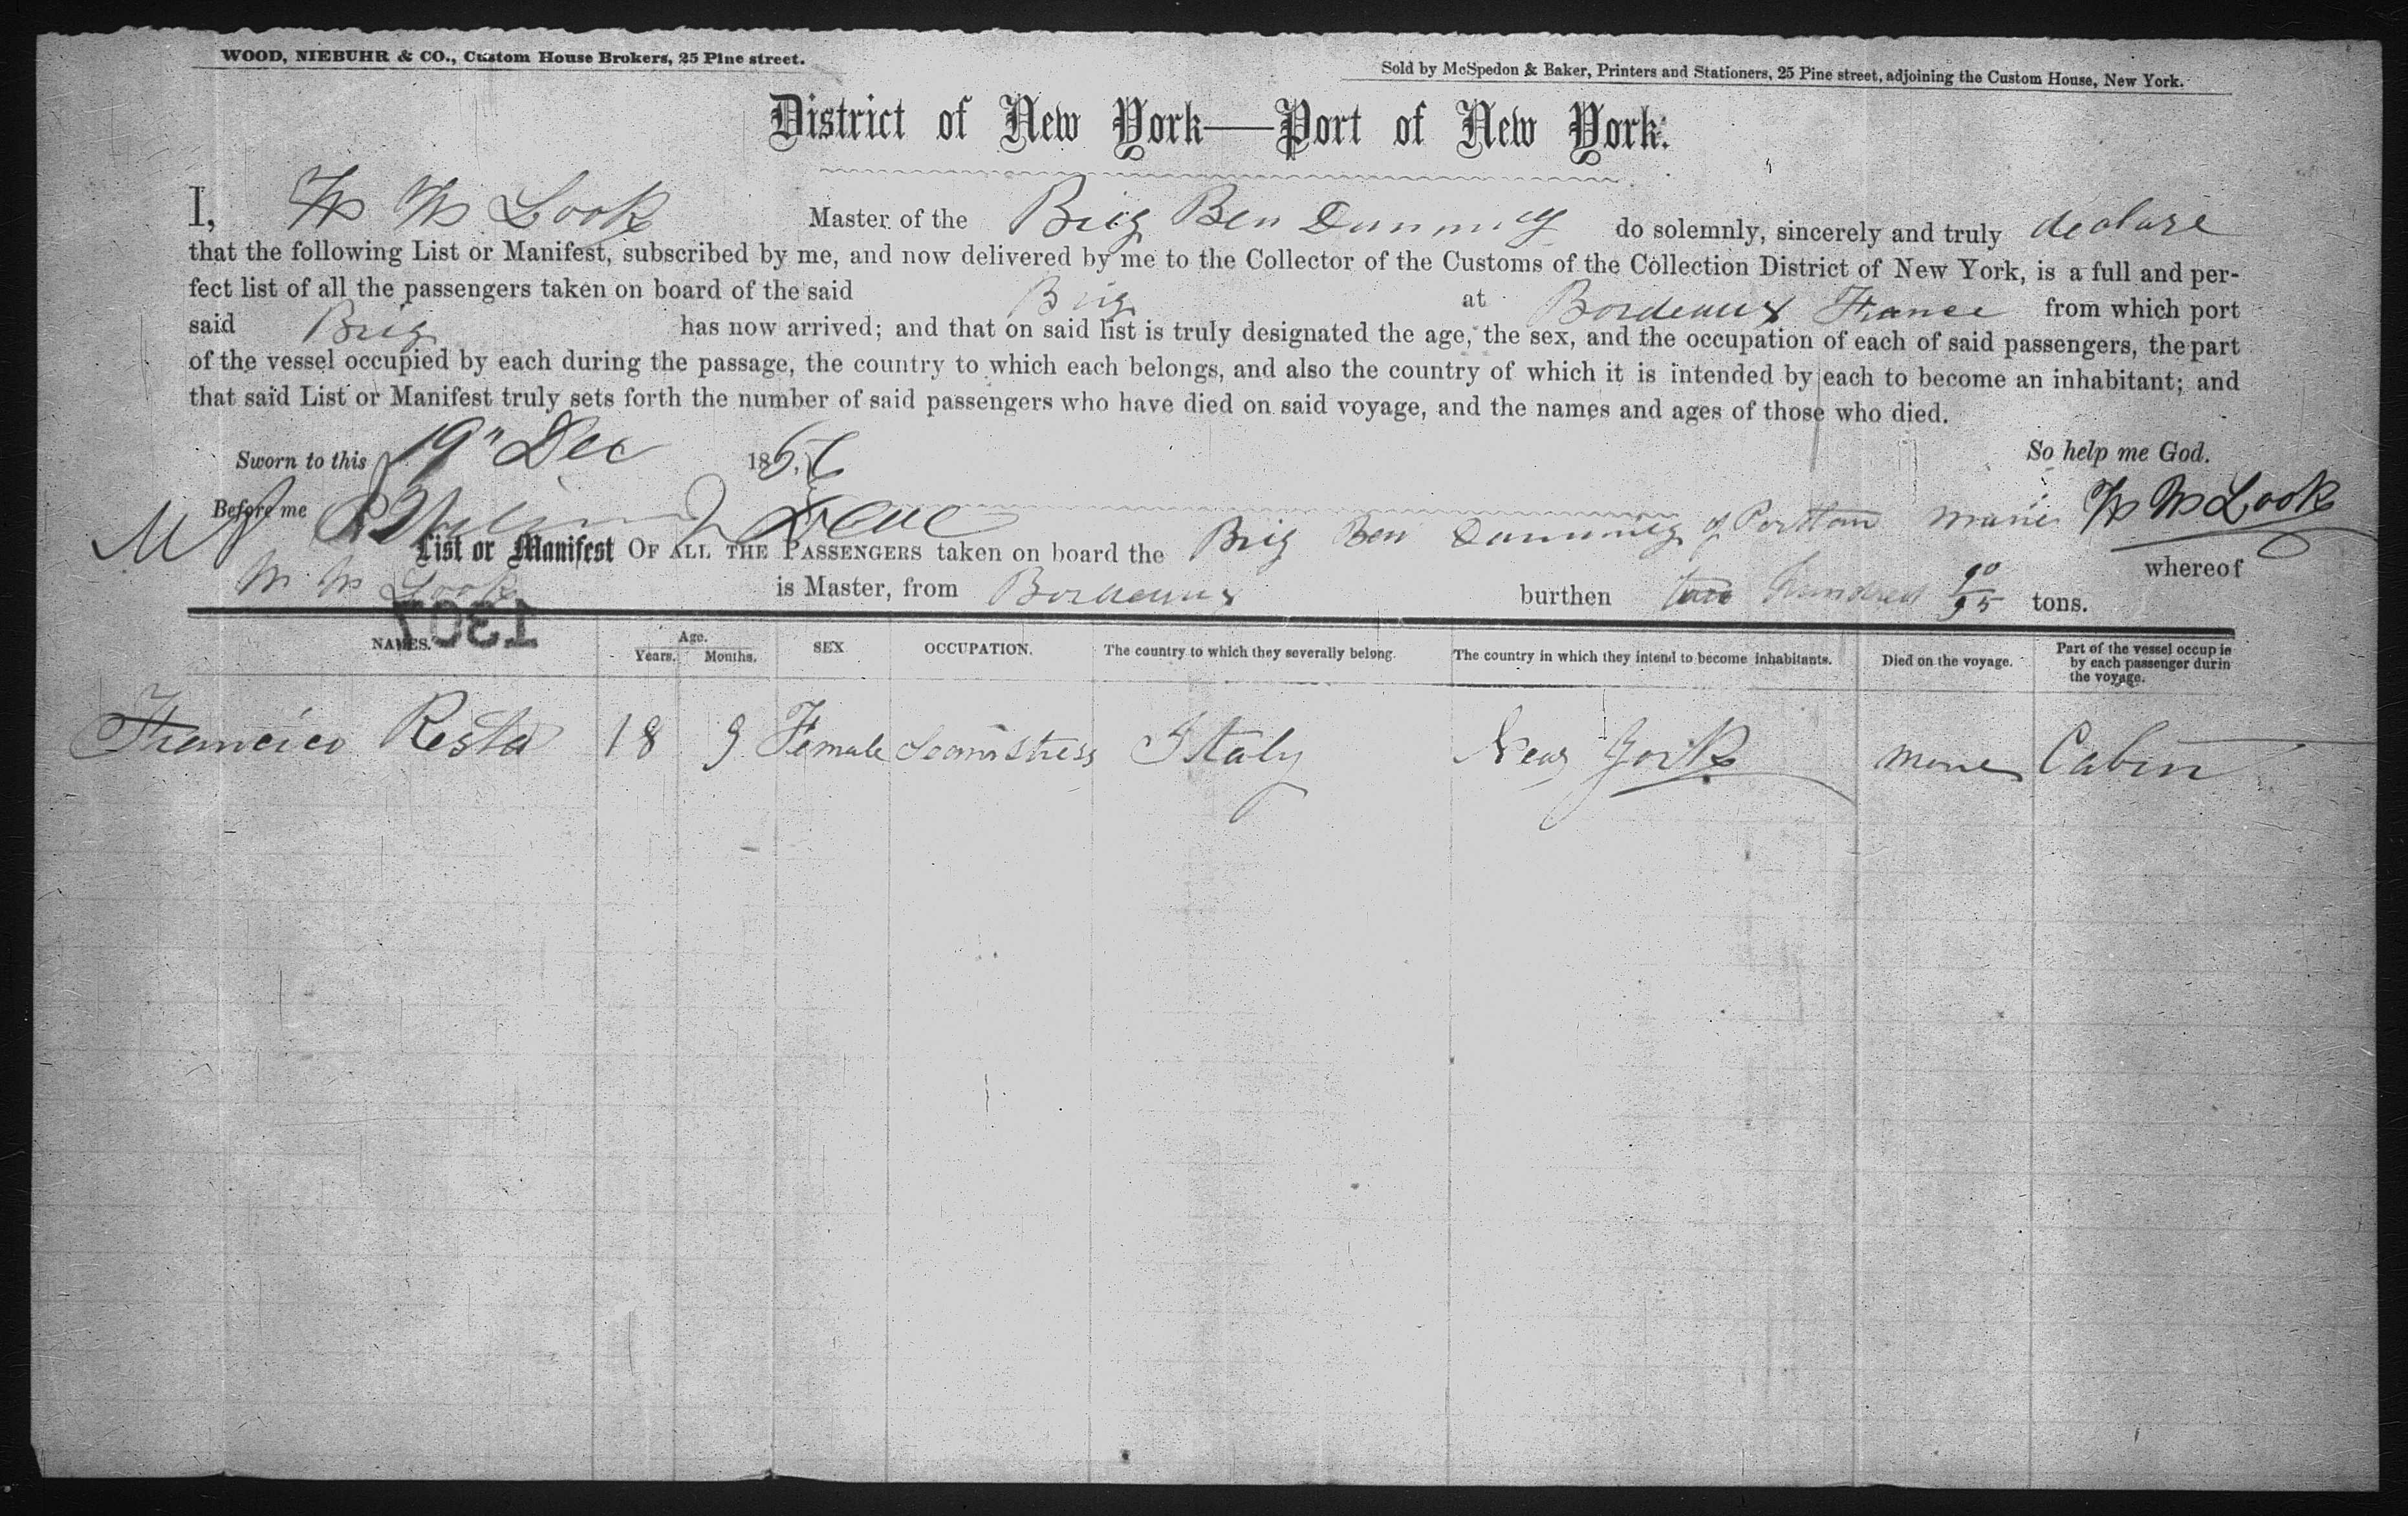 WOOD, NIEBUHR & CO., Custom House Brokers, 25 Pine street.
Sold by McSpedon & Baker, Printers and Stationers, 25 Pine street, adjoining the Custom House, New York.
District of New York—Port of New York.
I, Look Master of the Brig Ben Dunning do solemnly, sincerely and truly declare
that the following List or Manifest, subscribed by me, and now delivered by me to the Collector of the Customs of the Collection District of New York, is a full and per-
fect list of all the passengers taken on board of the said Brig at Bordeaux France from which port
said Brig has now arrived; and that on said list is truly designated the age, the sex, and the occupation of each of said passengers, the part
of the vessel occupied by each during the passage, the country to which each belongs, and also the country of which it is intended by each to become an inhabitant; and
that said List or Manifest truly sets forth the number of said passengers who have died on said voyage, and the names and ages of those who died.
Sworn to this 19" Dec 1856 So help me God.
Before me Look
List or Manifest OF ALL THE PASSENGERS taken on board the Brig Ben Dunning of whereof
Look is Master, from Bordeaux burthen hundred 90/95 tons.
1307
NAMES. Age. Years. Months. SEX OCCUPATION. The country to which they severally belong. The country in which they intend to become inhabitants. Died on the voyage. Part of the vessel occup ie by each passenger durin the voyage.
Francico Resta 18 9 Female Seamstress Italy New York none Cabin